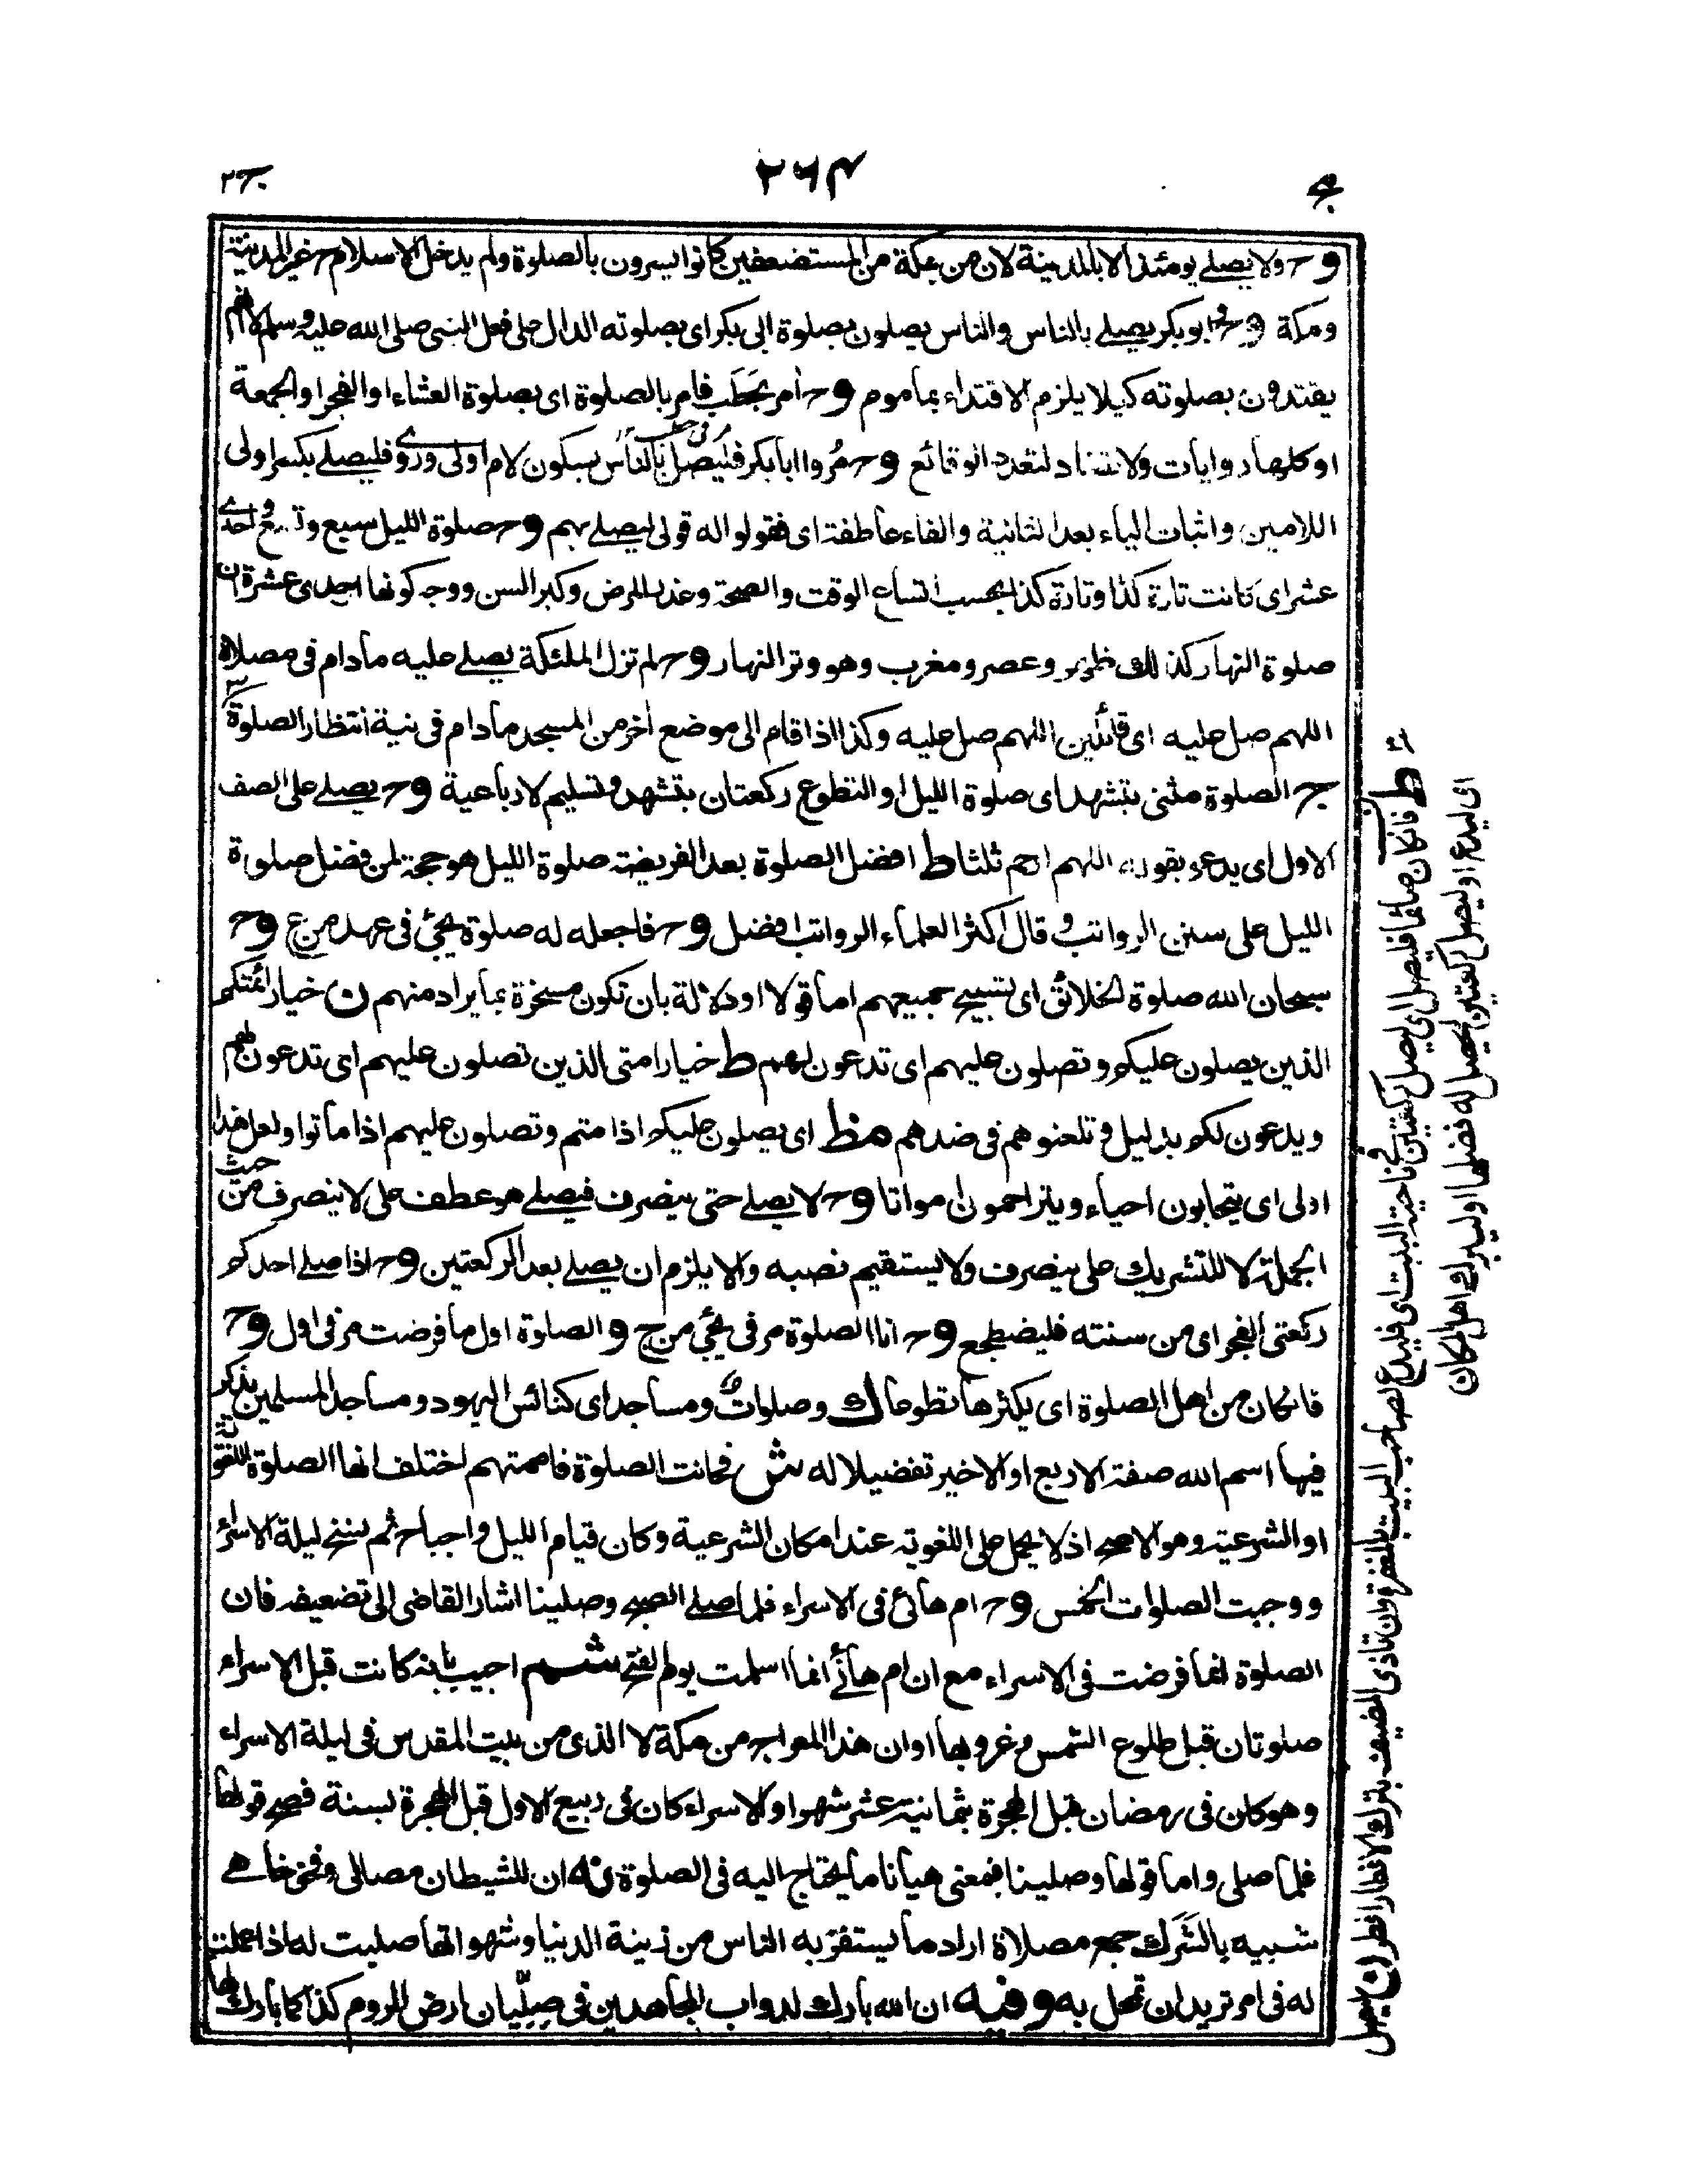 ج٢
٢٦٤
وح ولا يصلى يومئذ الا بالمدينة لان من بمكة من المستضعفين كانوا يسرون بالصلوة ولم يدخل الاسلام ح غير المدينة
ومكة وح ابو بكر يصلى بالناس والناس يصلون بصلوة ابى بكر اى بصلوته الدال على فعل النبى صلى الله عليه وسلم لا انهم
يقتدون بصلوته كيلا يلزم الاقتداء بماموم وح امر بحطب فامر بالصلوة اى بصلوة العشاء او الفجر او الجمعة
او كلها روايات ولا تضاد لتعدد الوقائع وح مُروا ابا بكر فليُصل بالناس بسكون لام اولى وروى فليصلى بكسر اولى
اللامين واثبات الياء بعد الثانية والفاء عاطفة اى فقولوا له قولى ليصلى بهم وح صلوة الليل سبع وتسع واحدى
عشر اى كانت تارة كذا وتارة كذا بحسب اتساع الوقت والصحة وعذر المرض وكبر السن ووجه كونها احدى عشرة ان
صلوة النهار كذلك ظهر وعصر ومغرب وهو وتر النهار وح لم تزل الملئكة يصلى عليه ما دام فى مصلاه
اللهم صل عليه اى قائلين اللهم صل عليه وكذا اذا قام الى موضع اخر من المسجد ما دام فى نية انتظار الصلوة
ج الصلوة مثنى بتشهد اى صلوة الليل او التطوع ركعتان بتشهد وتسليم لا رباعية وح يصلى على الصف
الاول اى يدعو بقوله اللهم ارحم ثلثا ط افضل الصلوة بعد الفريضة صلوة الليل هو حجة لمن فضل صلوة
الليل على سنن الرواتب وقال اكثر العلماء الرواتب افضل وح فاجعله له صلوة يجئ فى عهد من ع وح
سبحان الله صلوة الخلائق اى تسبيح جميعهم اما قولا او دلالة بان تكون مسخرة بما يراد منهم ن خيار ائمتكم
الذين يصلون عليكم وتصلون عليهم اى تدعون لهم ط خيار امتى الذين تصلون عليهم اى تدعون لهم
ويدعون لكم بدليل وتلعنوهم فى ضدهم مظ اى يصلون عليكم اذا متم وتصلون عليهم اذا ماتوا ولعل هذا
اولى اى يتحابون احياء ويتراحمون امواتا وح لا يصلى حتى ينصرف فيصلى هو عطف على لا ينصرف من حيث
الجملة لا للتشريك على ينصرف ولا يستقيم نصبه والا يلزم ان يصلى بعد الركعتين وح اذا صلى احدكم
ركعتى الفجر اى من سنته فليضطجع وح انا الصلوة مر فى يجئ من ج و الصلوة اول ما فرضت مر فى اول وح
فان كان من اهل الصلوة اى يكثرها تطوعا ك وصلوات ومساجد اى كنائس اليهود ومساجد المسلمين يذكر
فيها اسم الله صفة الاربع او الاخير تفضيلا له ش فحانت الصلوة فاممتهم اختلف انها الصلوة اللغوية
او الشرعية وهو الاصح اذ لا يحمل على اللغوية عند امكان الشرعية وكان قيام الليل واجبا ح ثم نسخ ليلة الاسراء
ووجبت الصلوات الخمس وح ام هانئ فى الاسراء فلما صلى الصبح وصلينا اشار القاضى الى تضعيفه فان
الصلوة انما فرضت فى الاسراء مع ان ام هانئ انما اسلمت يوم الفتح شم اجيب بانه كانت قبل الاسراء
صلوتان قبل طلوع الشمس وغروبها او ان هذا المعراج من مكة لا الذى من بيت المقدس فى ليلة الاسراء
وهو كان فى رمضان قبل الهجرة بثمانية عشر شهرا والاسراء كان فى ربيع الاول قبل الهجرة بسنة فصح قولها
فلما صلى واما قولها وصلينا فمعنى هيأنا ما يحتاج اليه فى الصلوة نه ان للشيطان مصالى وفخوخا هى
شبيه بالشرك جمع مصلاة اراد ما يستفز به الناس من زينة الدنيا وشهواتها صليت له اذا عملت
له فى امر تريد ان تمحل به وفيه ان الله بارك لدواب المجاهدين فى صِلّيان ارض الروم كما بارك لها
ط فان كان صائما فليصل اى ليصل ركعتين فى ناحية البيت اى فليدع لصاحب البيت بالمغفرة وان تاذى المضيف بترك الافطار افطر ن اصل
اى ليدع او ليصل ركعتين ليحصل له فضلها او ليبرك اهل المكان